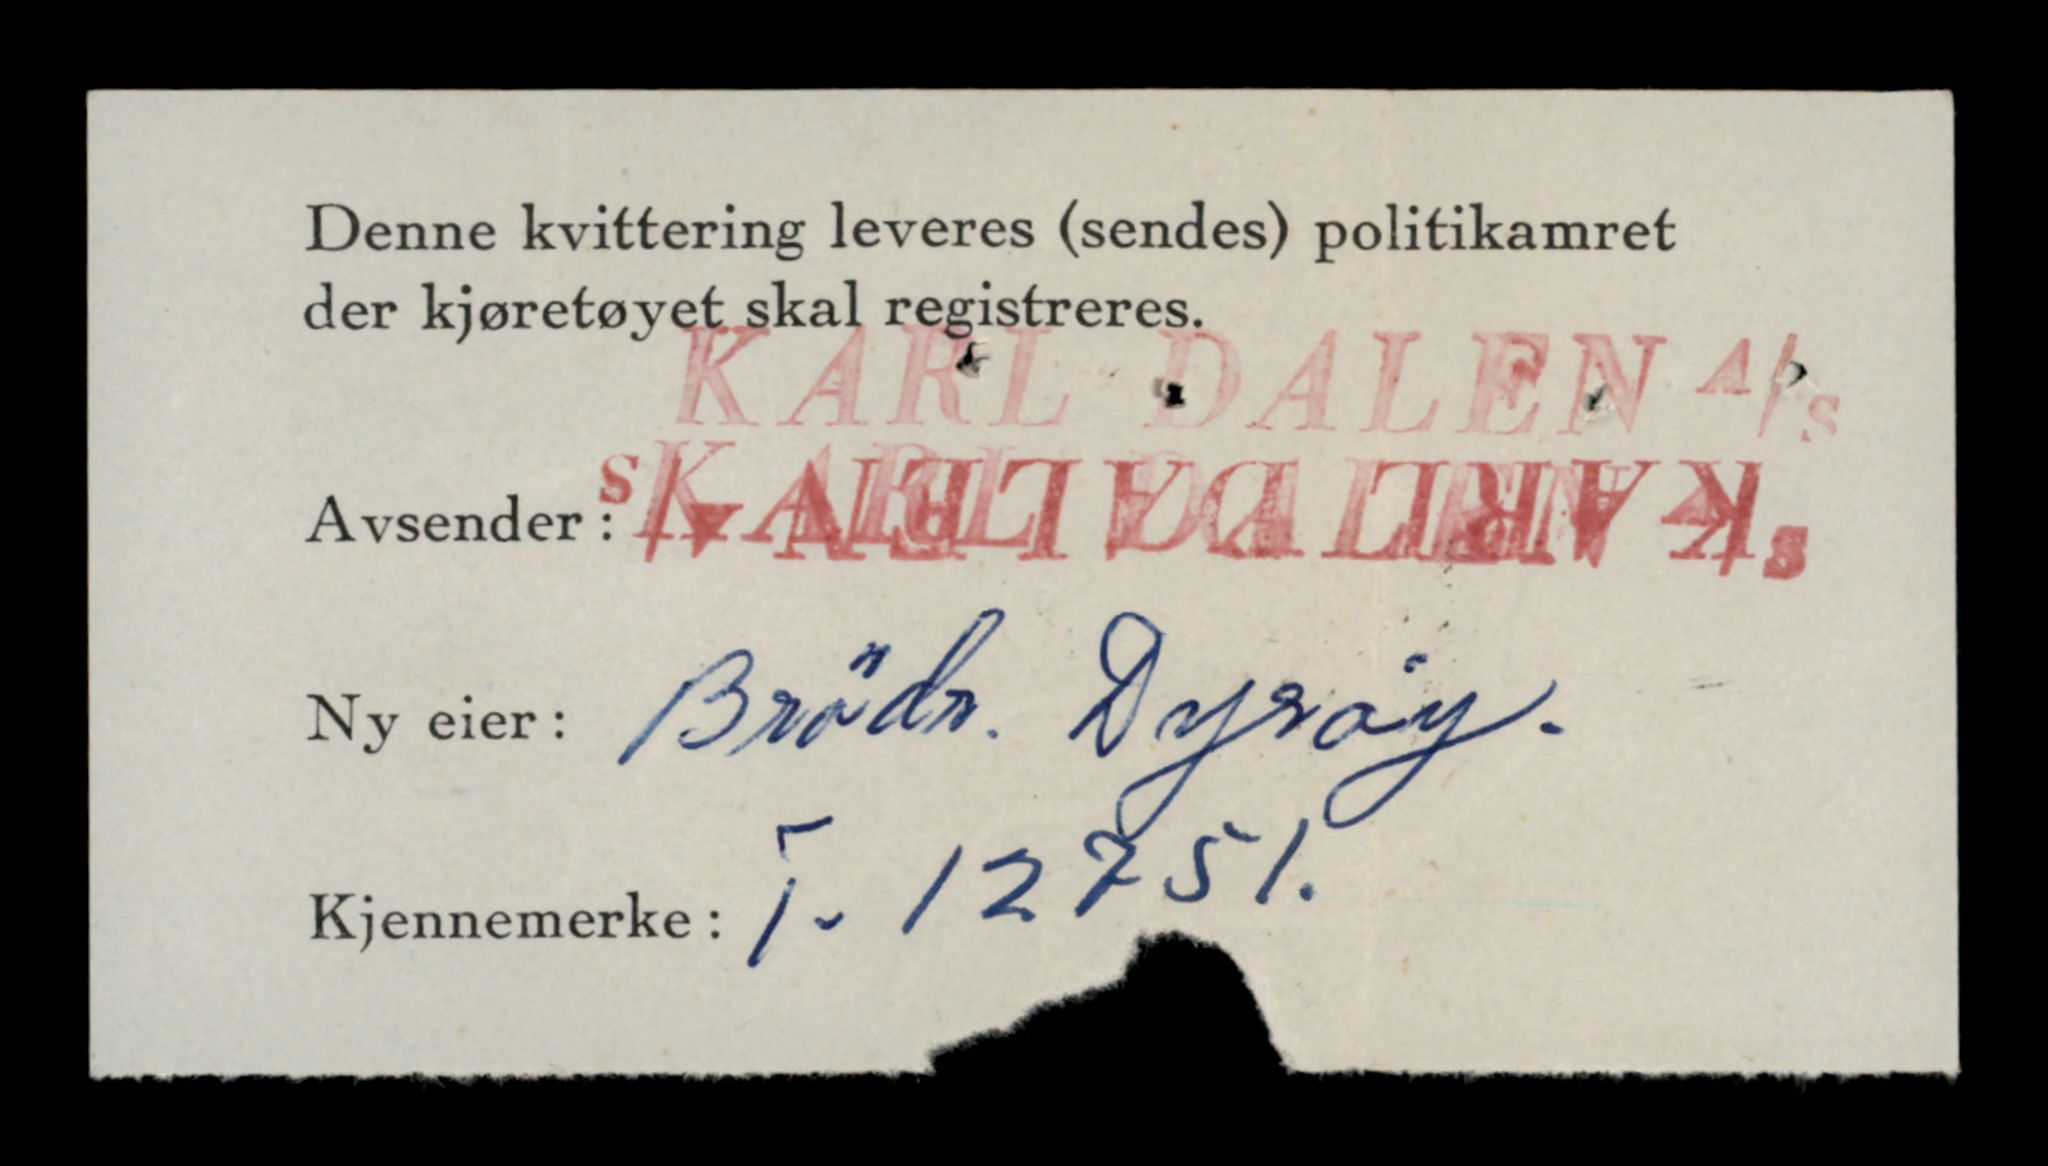 Denne kvittering leveres (sendes) politikamret
der kjøretøyet skal registreres.
KARL DALEN A/S
Avsender: KARL DALEN A/S
Ny eier: Brödr. Dyröy.
Kjennemerke: T. 12751.